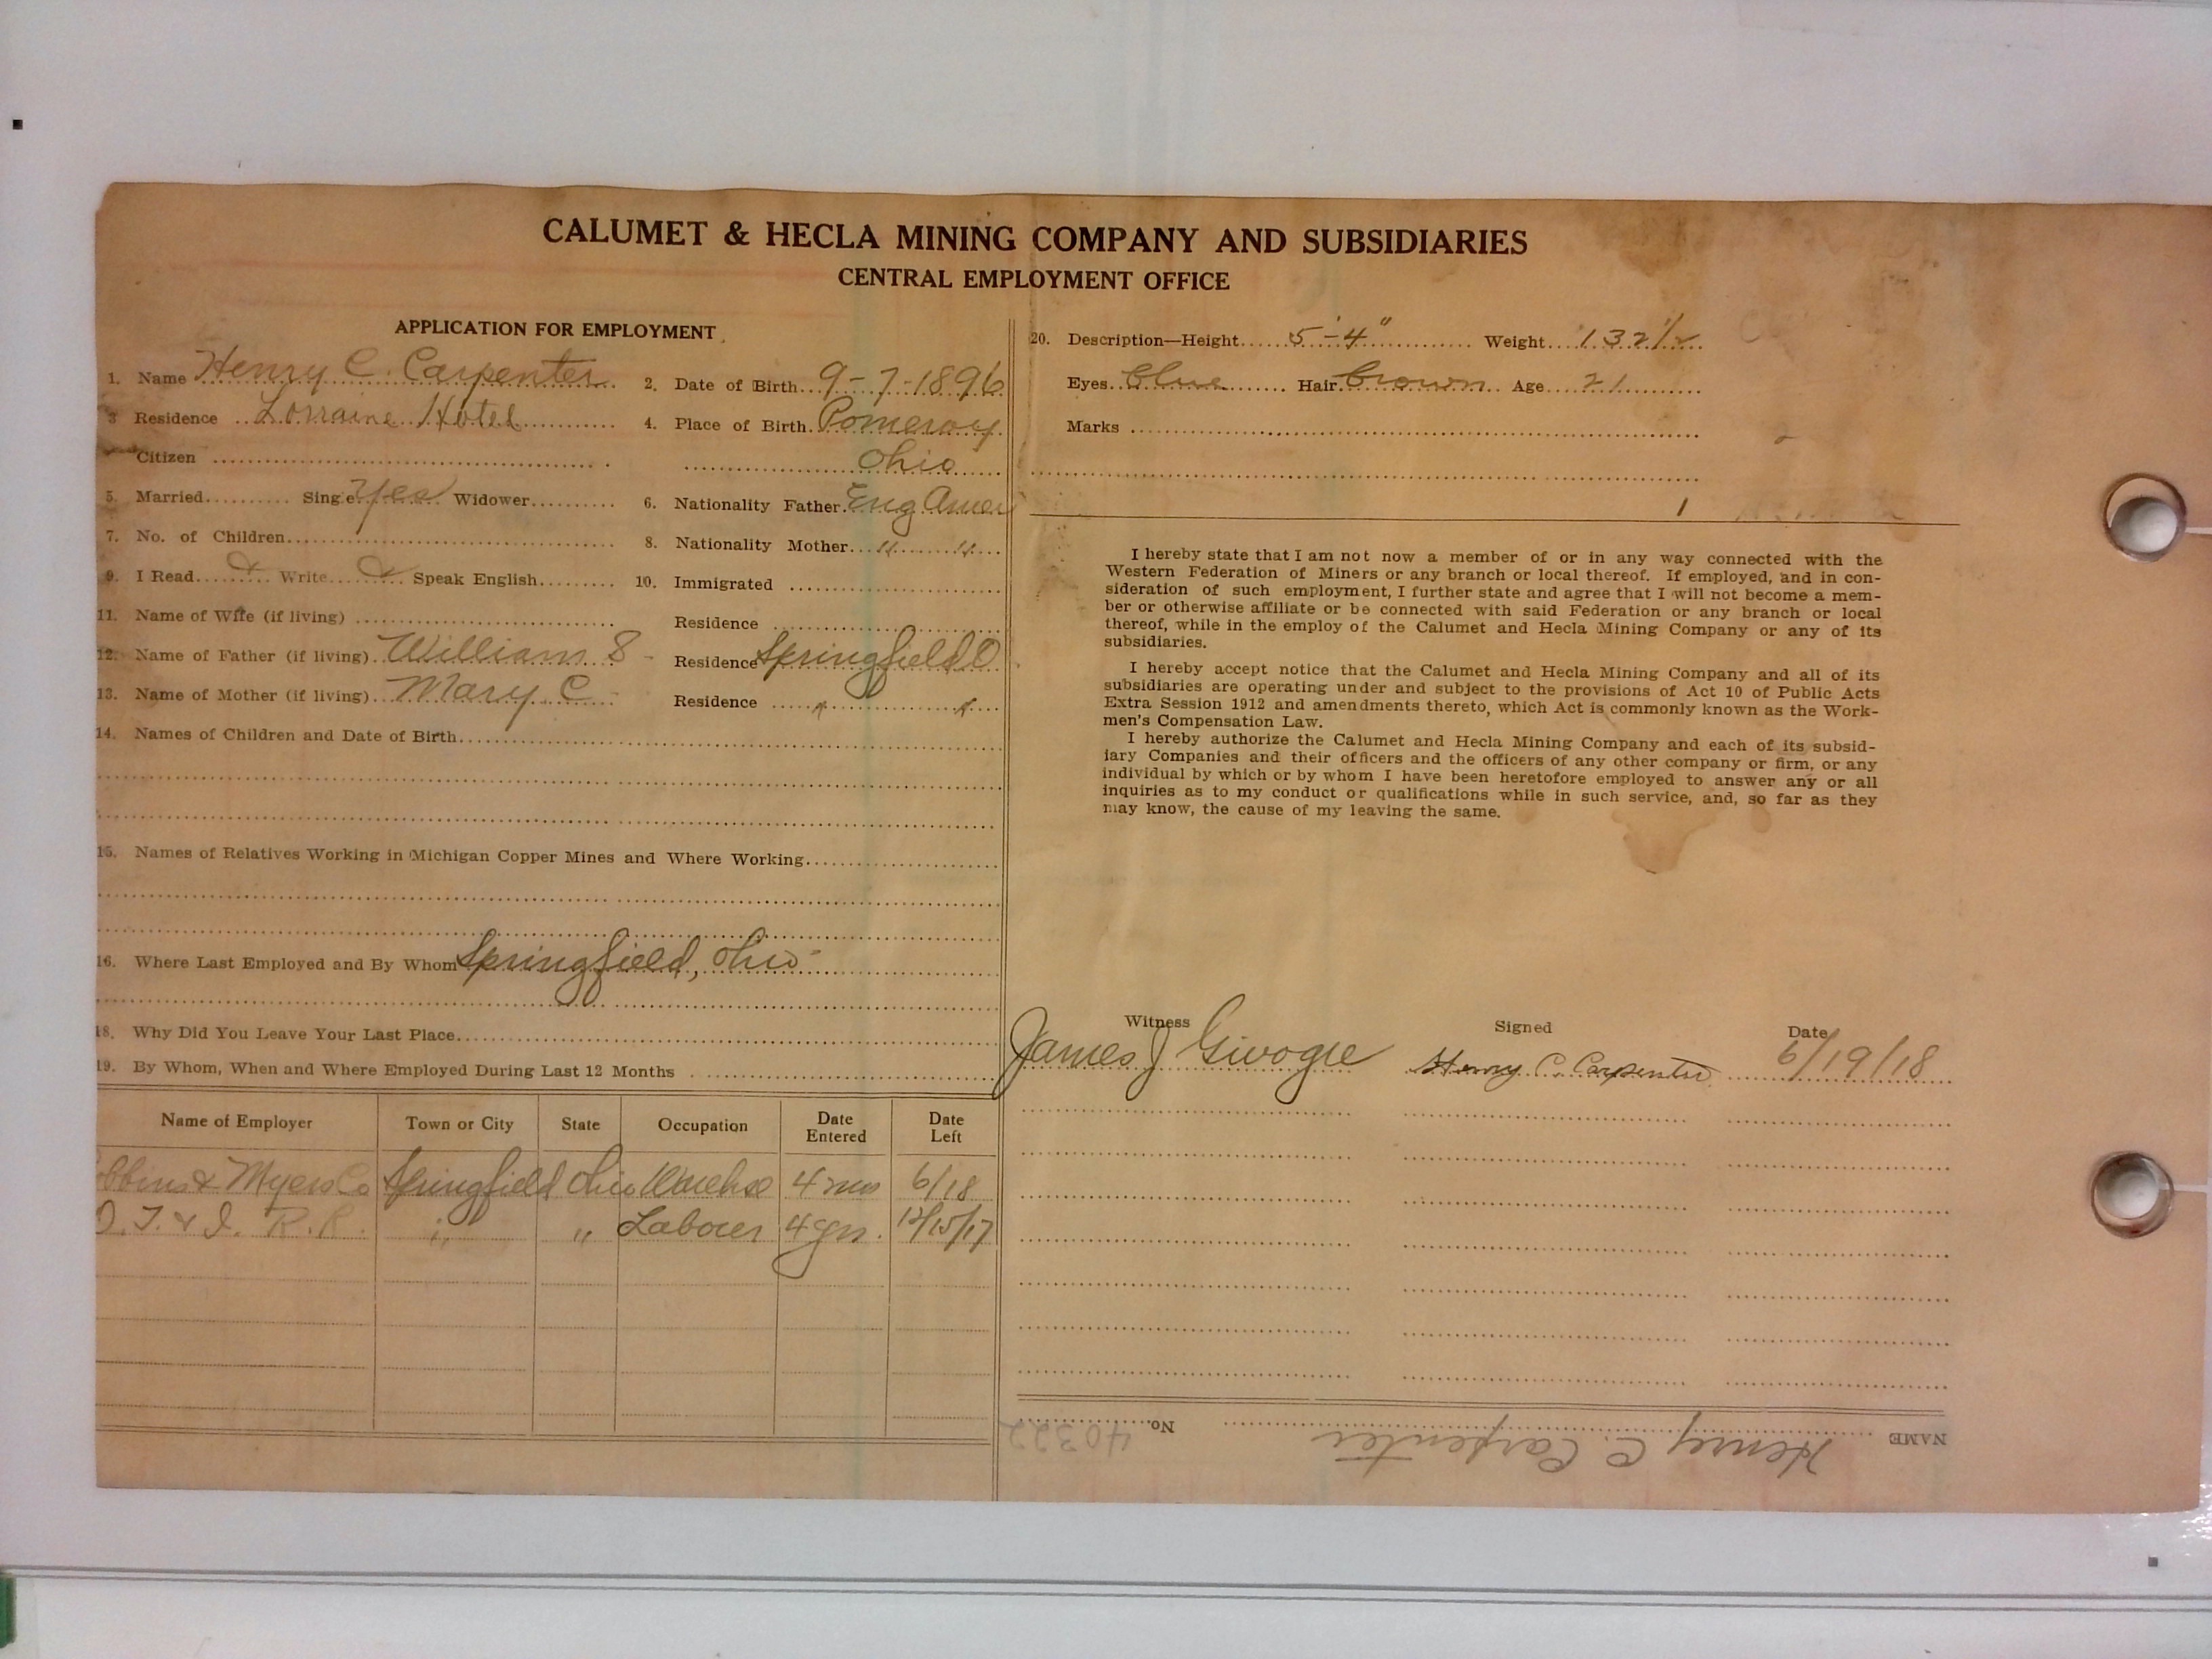 CALUMET & HECLA MINING COMPANY AND SUBSIDIARIES
CENTRAL EMPLOYMENT OFFICE
APPLICATION FOR EMPLOYMENT
1. Name Henry C. Carpenter 2. Date of Birth 9-7-1896
3 Residence Lorraine Hotel 4. Place of Birth Pomeroy
Citizen Ohio
5. Married Single Yes Widower 6. Nationality Father Eng Amer
7. No. of Children 8. Nationality Mother " "
9. I Read Write Speak English 10. Immigrated
11. Name of Wife (if living) Residence
12. Name of Father (if living) William S Residence Springfield O
13. Name of Mother (if living) Mary C Residence " "
14. Names of Children and Date of Birth
15. Names of Relatives Working in Michigan Copper Mines and Where Working
16. Where Last Employed and By Whom Springfield, Ohio
18. Why Did You Leave Your Last Place
19. By Whom, When and Where Employed During Last 12 Months
Name of Employer Town or City State Occupation Date Entered Date Left
obbins & Myers Co Springfield Ohio 4 mos 6/18
D. T. & I. R.R. " " Laborer 4 yrs. 12/15/17
20. Description—Height 5'-4" Weight 132 1/2
Eyes blue Hair brown Age 21
Marks
I hereby state that I am not now a member of or in any way connected with the
Western Federation of Miners or any branch or local thereof. If employed, and in con-
sideration of such employment, I further state and agree that I will not become a mem-
ber or otherwise affiliate or be connected with said Federation or any branch or local
thereof, while in the employ of the Calumet and Hecla Mining Company or any of its
subsidiaries.
I hereby accept notice that the Calumet and Hecla Mining Company and all of its
subsidiaries are operating under and subject to the provisions of Act 10 of Public Acts
Extra Session 1912 and amendments thereto, which Act is commonly known as the Work-
men's Compensation Law.
I hereby authorize the Calumet and Hecla Mining Company and each of its subsid-
iary Companies and their officers and the officers of any other company or firm, or any
individual by which or by whom I have been heretofore employed to answer any or all
inquiries as to my conduct or qualifications while in such service, and, so far as they
may know, the cause of my leaving the same.
Witness Signed Date
James J Henry C. Carpenter 6/19/18
NAME Henry C. Carpenter No. 40322